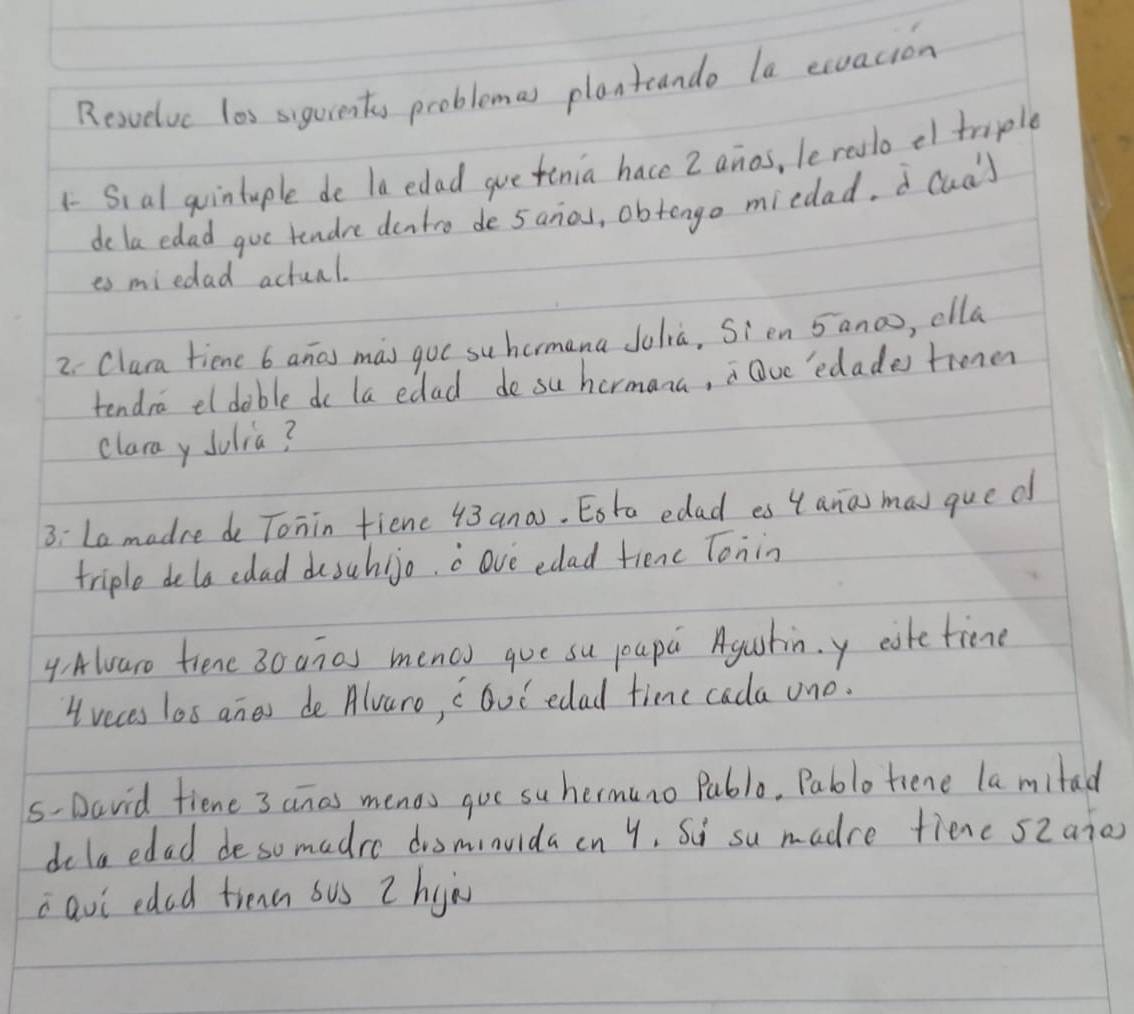 Resuelve los siguientes problemas planteando la ecuación
1- Si al quintuple de la edad que tenia hace 2 años, le resto el triple
de la edad que tendre dentro de 5 años, obtengo mi edad. ¿ Cuál
es mi edad actual.
2- Clara tiene 6 años más que su hermana Julia, Si en 5 años, ella
tendrá el doble de la edad de su hermana, ¿Que edades tienen
Clara y Julia?
3- La madre de Toñin tiene 43 años. Esta edad es 4 años mas que el
triple de la edad de su hijo. ¿ Qué edad tiene Toñin
4. Alvaro tiene 30 años menos que su papá Agustin. y este tiene
4 veces los años de Alvaro, ¿ Qué edad tiene cada uno.
5- David tiene 3 años menos que su hermano Pablo. Pablo tiene la mitad
de la edad de su madre disminuida en 4. Si su madre tiene 52 años
¿ Qué edad tienen sus 2 hijos